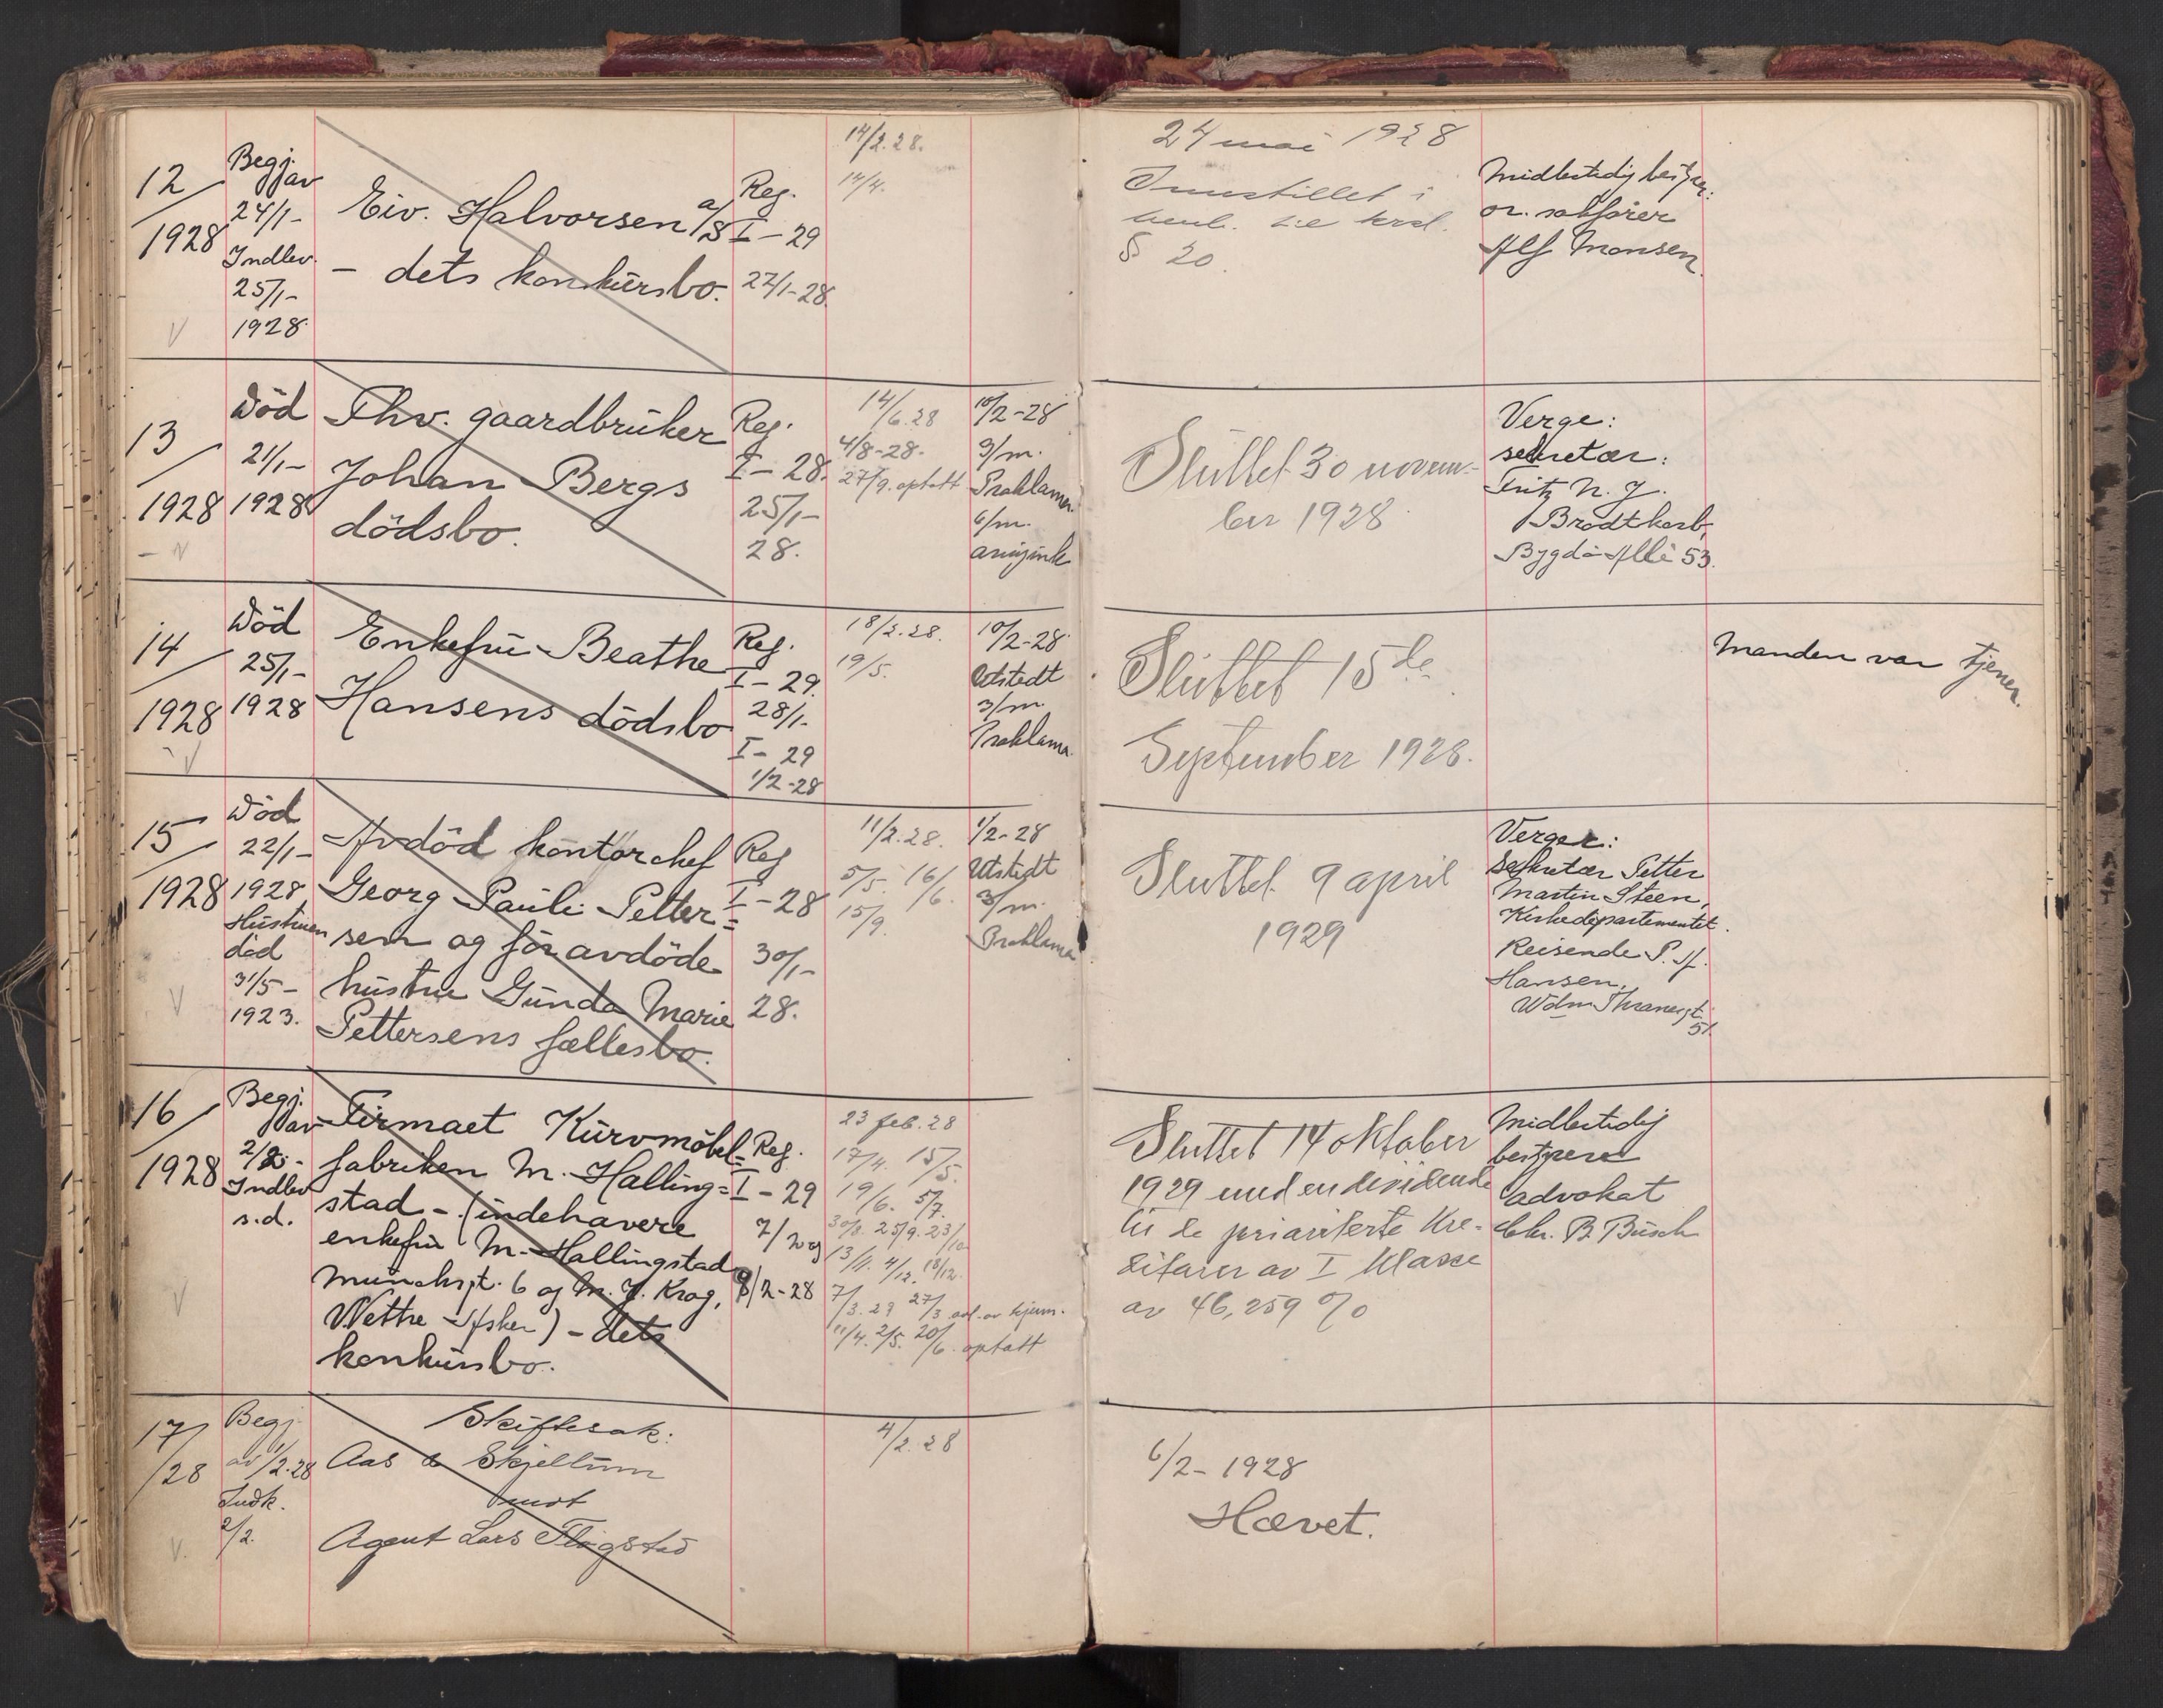 12
1928
Begj. av
24/1-
Indlev.
25/1-
1928
Eiv. Halvorsen a/s
- dets konkursbo.
Reg.
I - 29
27/1-28.
14/2.28.
14/4.
24 mai 1928
Innstillet i
henh. til krsl.
§ 20.
Midlertidig bestyrer:
or. sakfører
Alf Monsen.
13
1928
Död
21/1-
1928
Fhv. gaardbruker
Johan Bergs
dödsbo.
Reg.
I - 28.
25/1-
28.
14/6.28
4/8-28.
27/9. optatt
10/2-28
3/m.
Proklama
6/m.
Sluttet 30 novem-
ber 1928
Verge:
sekretær:
Fritz N. J.
Brodtkorb,
Bygdö Allé 53.
14
1928
Död
25/1-
1928
Enkefru Beathe
Hansens dödsbo
Reg.
I - 29.
28/1-
I - 29
1/2-28
18/2.28.
19/5.
10/2-28
Utstedt
3/m
Proklama
Sluttet 15de
September 1928.
Manden var tjener.
15
1928
Död
22/1-
1928
Hustruen
död
31/5-
1923.
Avdöd kontorchef
Georg Pauli Petter=
sen og før avdöde
hustru Gunda Marie
Pettersens fællesbo.
Reg
I - 28
30/1-
28.
11/2.28.
5/5. 16/6.
15/9.
1/2-28
Utstedt
3/m.
Proklama
Sluttet 9 april
1929
Verger:
Sekretær Petter
Martin Steen,
Kirkedepartementet.
Reisende P. A.
Hansen,
Wdm Thranesgt.
51.
16
1928
Begj. av
2/2-
Indlev
s.d.
Firmaet Kurvmöbel=
fabriken M. Halling=
stad - (indehavere
enkefru M. Hallingstad,
Munchsgt. 6 og M. J. Krog,
Wettre Asker) - dets
konkursbo.
Reg.
I - 29
7/2 og
8/2-28
23 feb. 28
17/4. 15/5.
19/6. 5/7.
30/8. 25/9. 23/10
13/11. 4/12. 18/12.
7/3.29 27/3
11/4. 2/5. 20/6. optatt
Sluttet 14 oktober
1929 med en dividende
til de prioriterte kre-
ditorer av I klasse
av 46,259 %
Midlertidig
bestyrer
advokat
Chr. B. Busch
17/
/28
Begj.
av 1/2.28
Indk.
2/2.
Skiftesak:
Aas & Skjellum
mot
Agent Lars Flogstad
4/2.28
6/2-1928
Hævet.